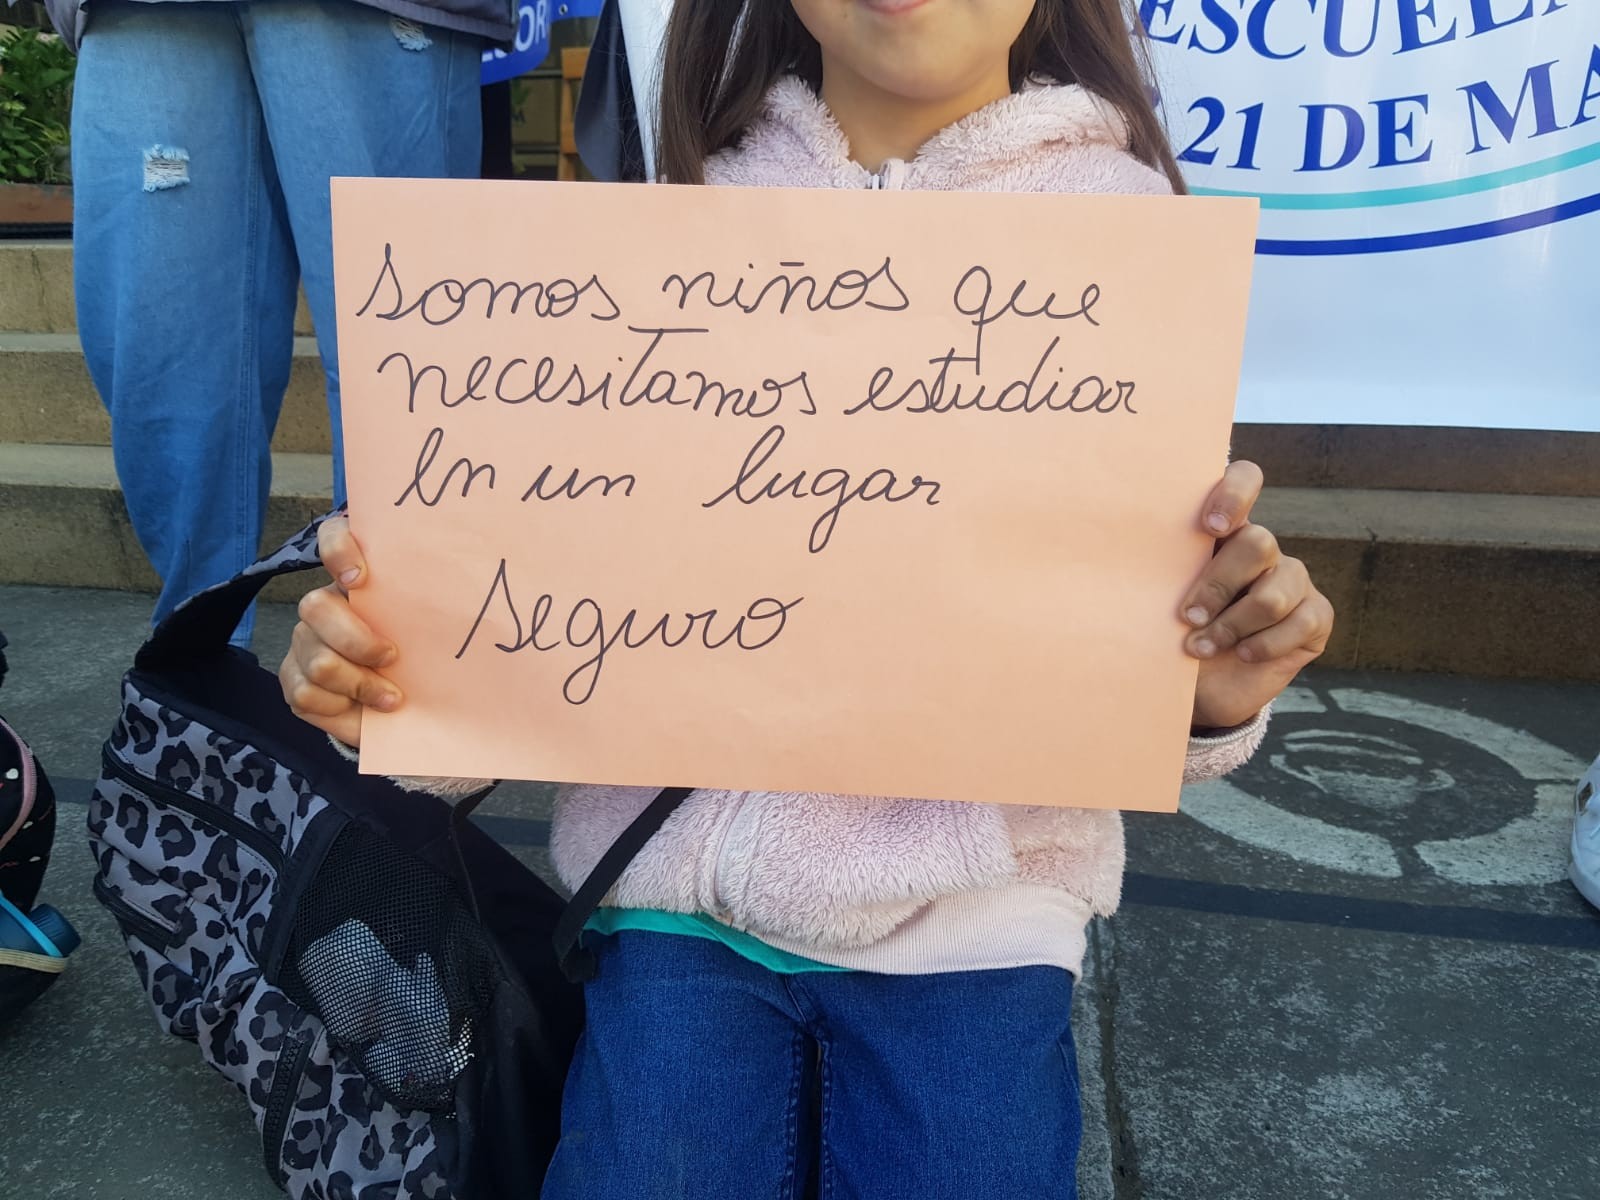 somos niños que
necesitamos estudiar
en un lugar
seguro
ESCUELA
21 DE MA